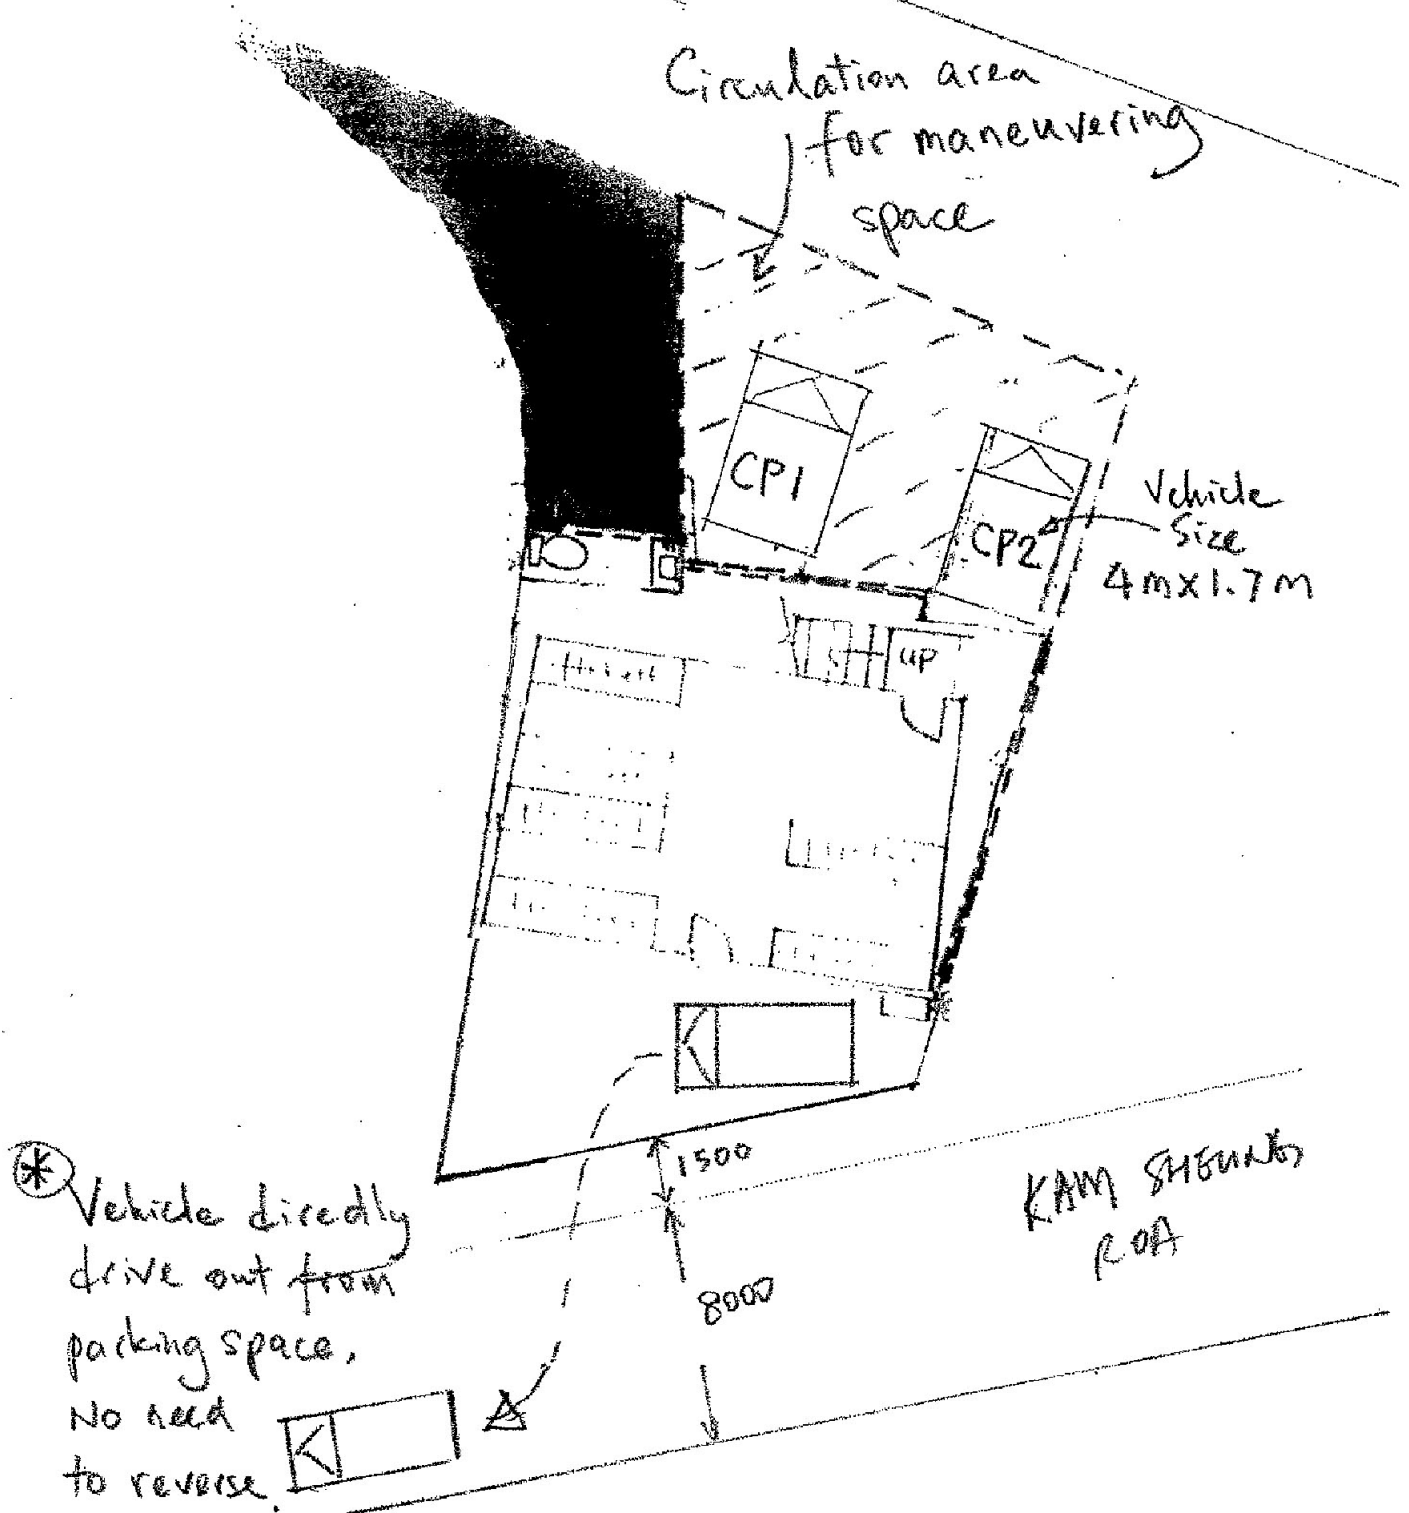 Circulation area
for maneuvering
space
CP1
CP2
Vehicle
Size
4m×1.7m
UP
1500
8000
KAM SHEUNG
ROA
* Vehicle directly
drive out from
parking space.
No need
to reverse.